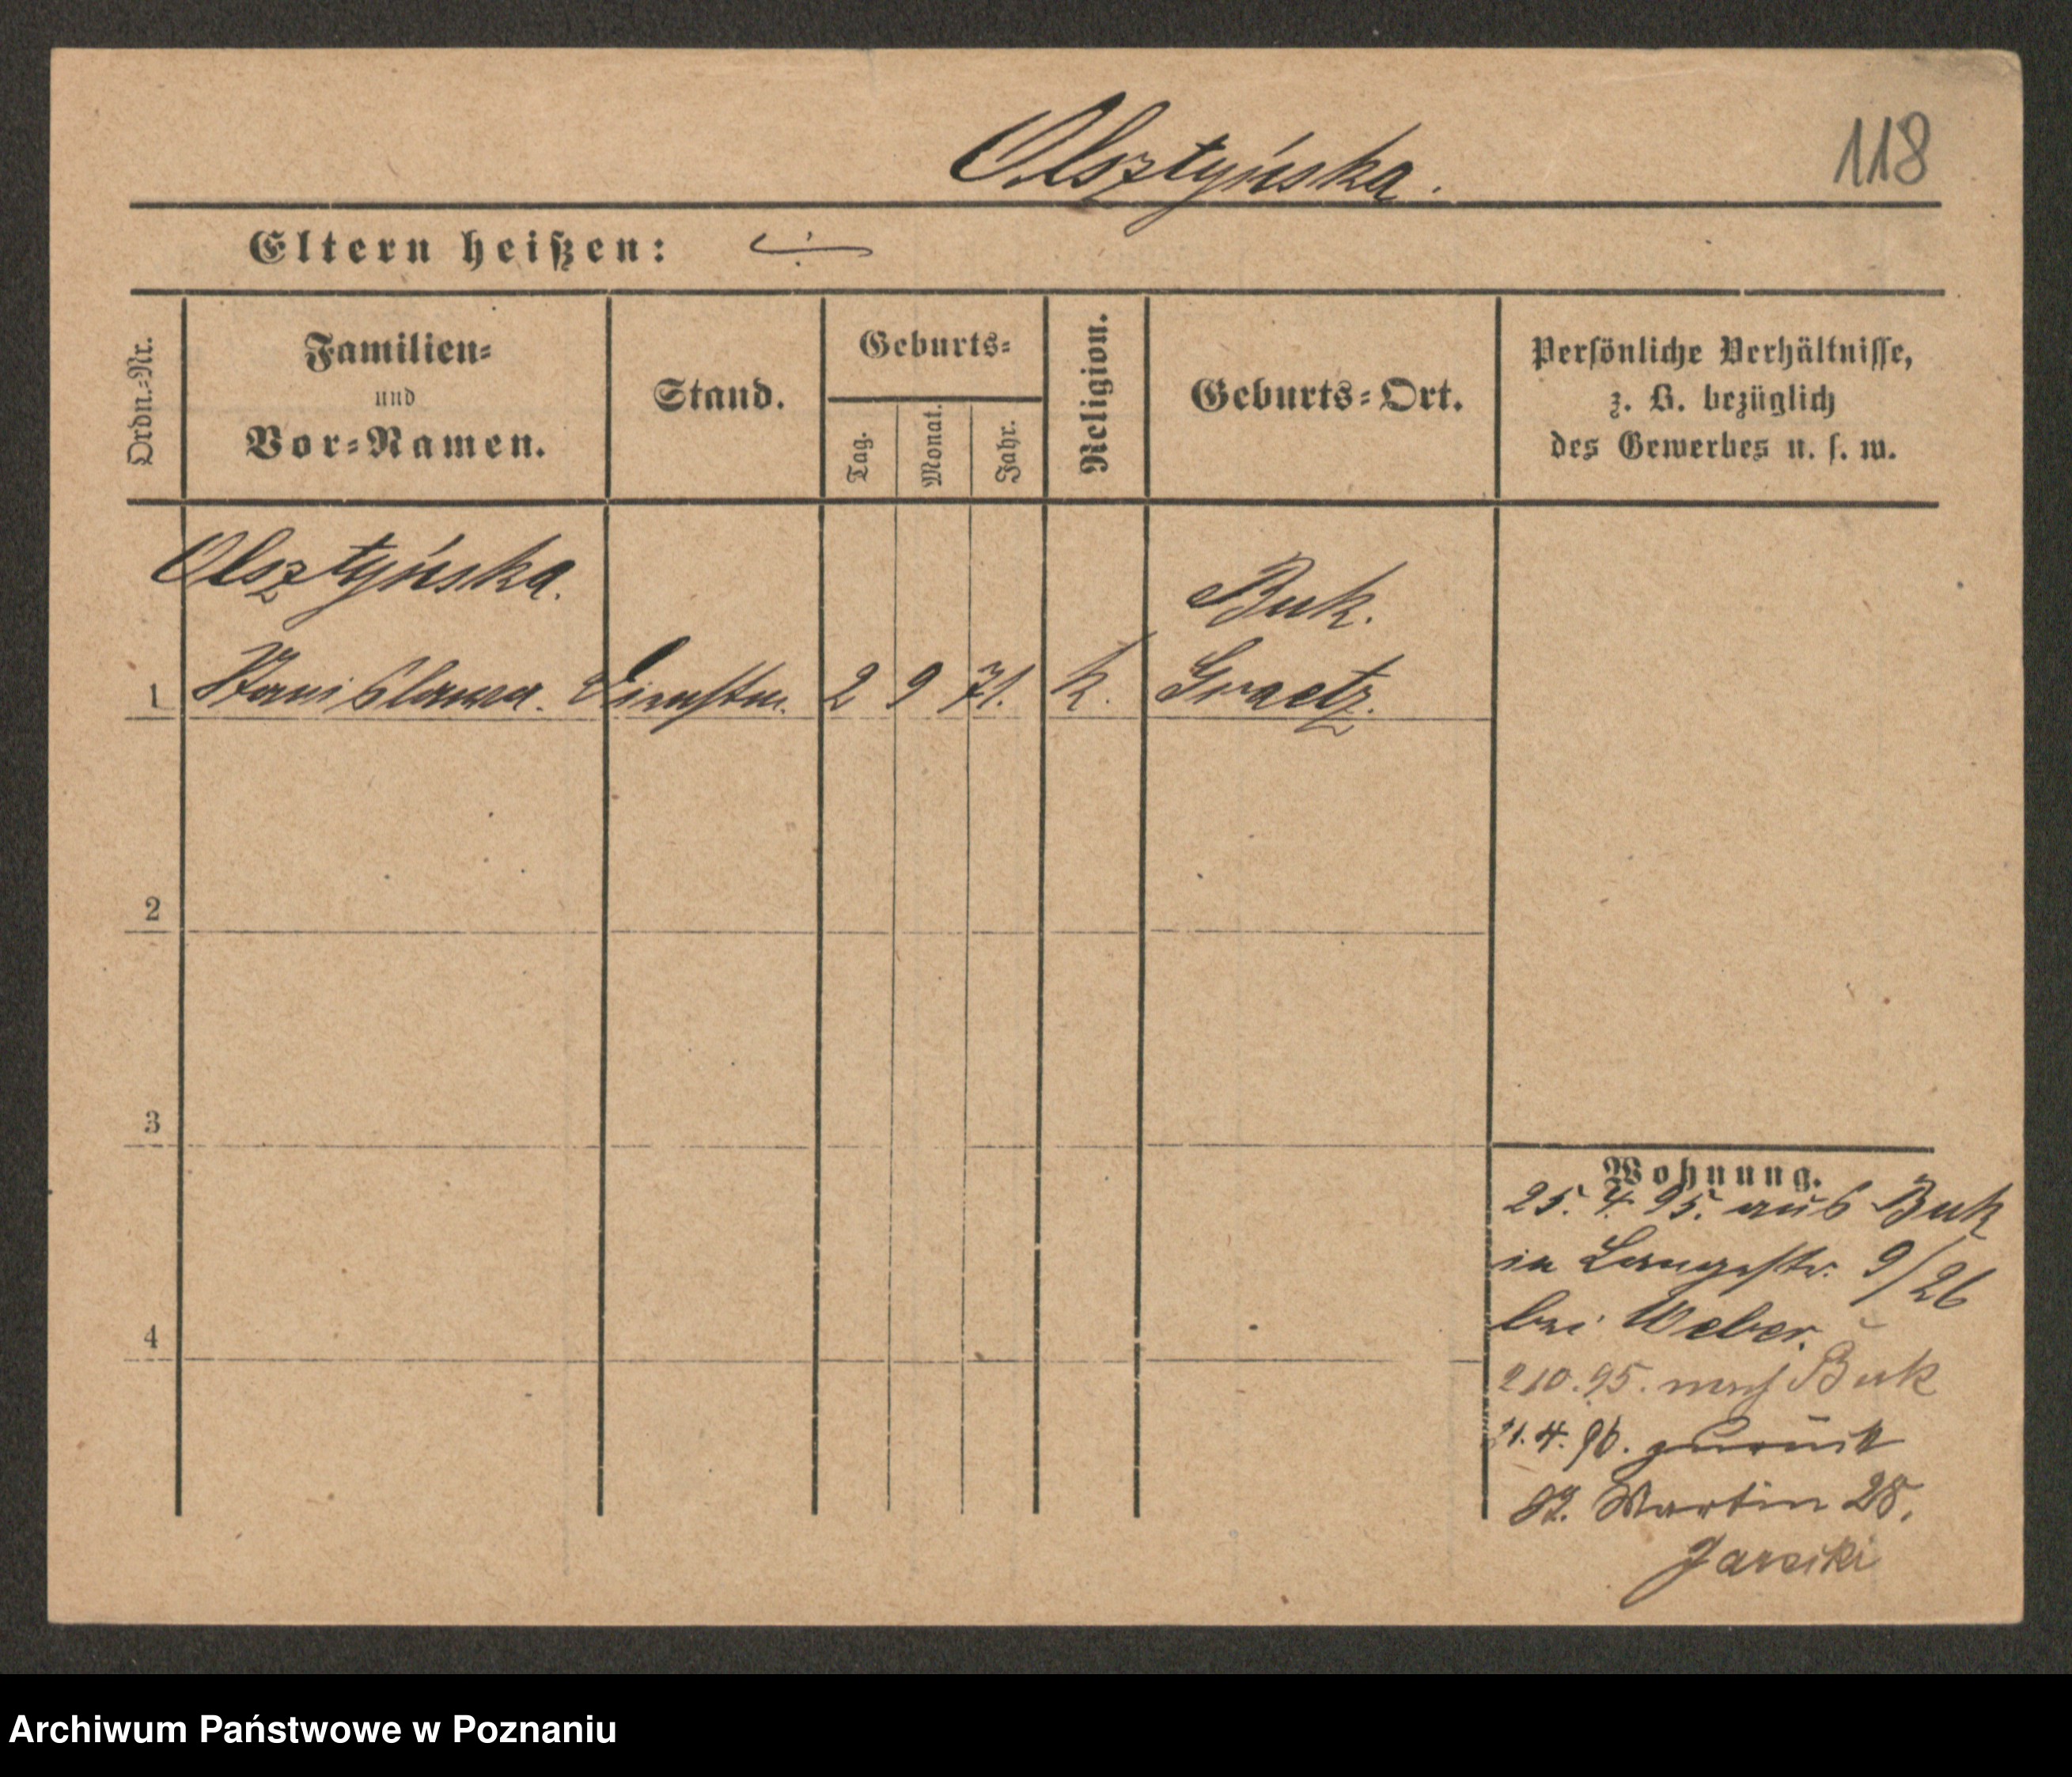 Olsztyńska.
118
Eltern heißen:
Ordn.-Nr.
Familien-
und
Vor-Namen.
Stand.
Geburts-
Tag.
Monat.
Jahr.
Religion.
Geburts-Ort.
Persönliche Verhältnisse,
z. B. bezüglich
des Gewerbes u. s. w.
Olsztyńska.
Buk.
1 Stanislawa. Dienstm. 2 9 71. k. Graetz.
2
3
4
Wohnung.
25. 4. 95. aus Buk
in Langestr. 9/26
bei Weber.
2 10. 95. nach Buk
4. 96. zurück
St. Martin 28.
Archiwum Państwowe w Poznaniu